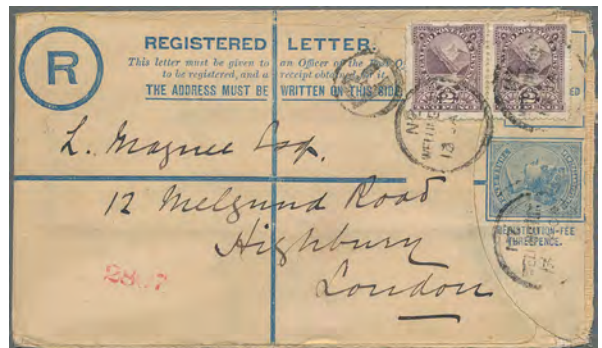 R
REGISTERED LETTER.
This letter must be given to an Officer of the Post
to be registered, and a receipt obtained for it.
THE ADDRESS MUST BE WRITTEN ON THIS SIDE
L. Magnee Esq.
12 Melgund Road
Highbury
London
REGISTRATION-FEE
THREEPENCE.